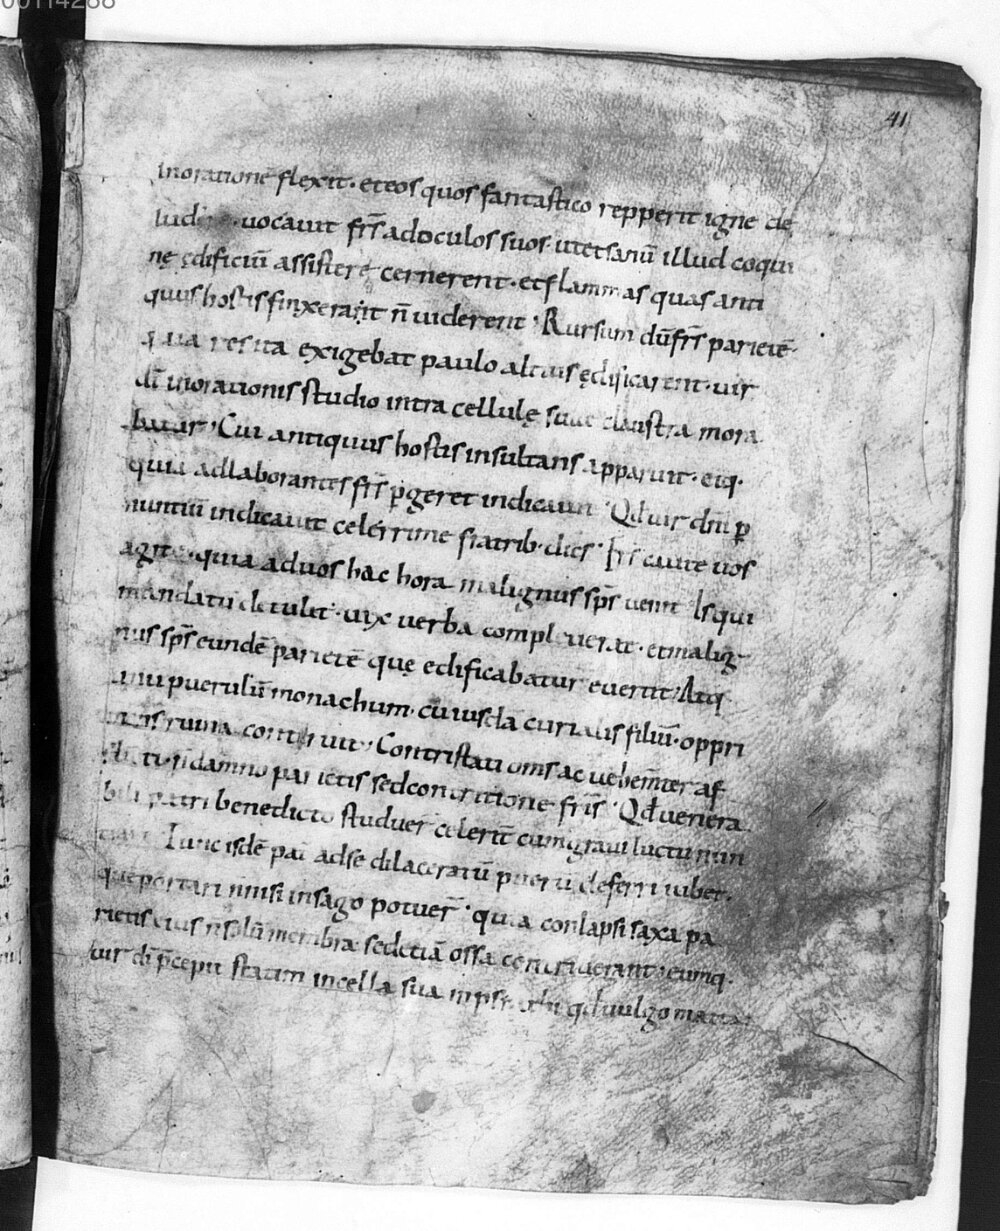 00114288
41
inorationē flexit · et eos quos fantastico repperit igne de
ludi · uocauit fr̄s ad oculos suos · ut et sanū illud coqui
nę ędificiū assistere cernerent · et flammas quas anti
quus hostis finxerat n̄ uiderent · Rursum dū fr̄s parietē
quia res ita exigebat paulo altius ędificarent · uir
dī in orationis studio intra cellulę suae claustra mora
batur · Cui antiquus hostis insultans apparuit · eiq·
quia ad laborantes fr̄s p̄geret indicauit · Qđ uir dn̄i ꝑ
nuntiū indicauit celerrime fratrib· dicēs · fr̄s caute uos
agite · quia ad uos hac hora malignus sp̄s uenit · Is qui
mandatū detulit · uix uerba compleuerat · et malig
nus sp̄s eundē parietē que edificabatur euertit · Atq·
unū puerulū monachum · cuiusdā curialis filiū · oppri
mens ruina contriuit · Contristati om̄s ac uehemt̄er af
flicti · n̄ damno parietis sed contritione fr̄is · Qđ uenera
bili patri benedicto studuer̄ celerit̄ cum graui luctu nun
tiare Tunc isdē pat̄ ad se dilaceratū puerū deferri iubet ·
quē portari n̄ nisi in sago potuer̄ · quia conlapsi saxa pa
rietis eius n̄ solū membra sed etiā ossa contriuerant · eumq·
uir dī p̄cepit statim in cella sua in psiathi qđ uulgo matta